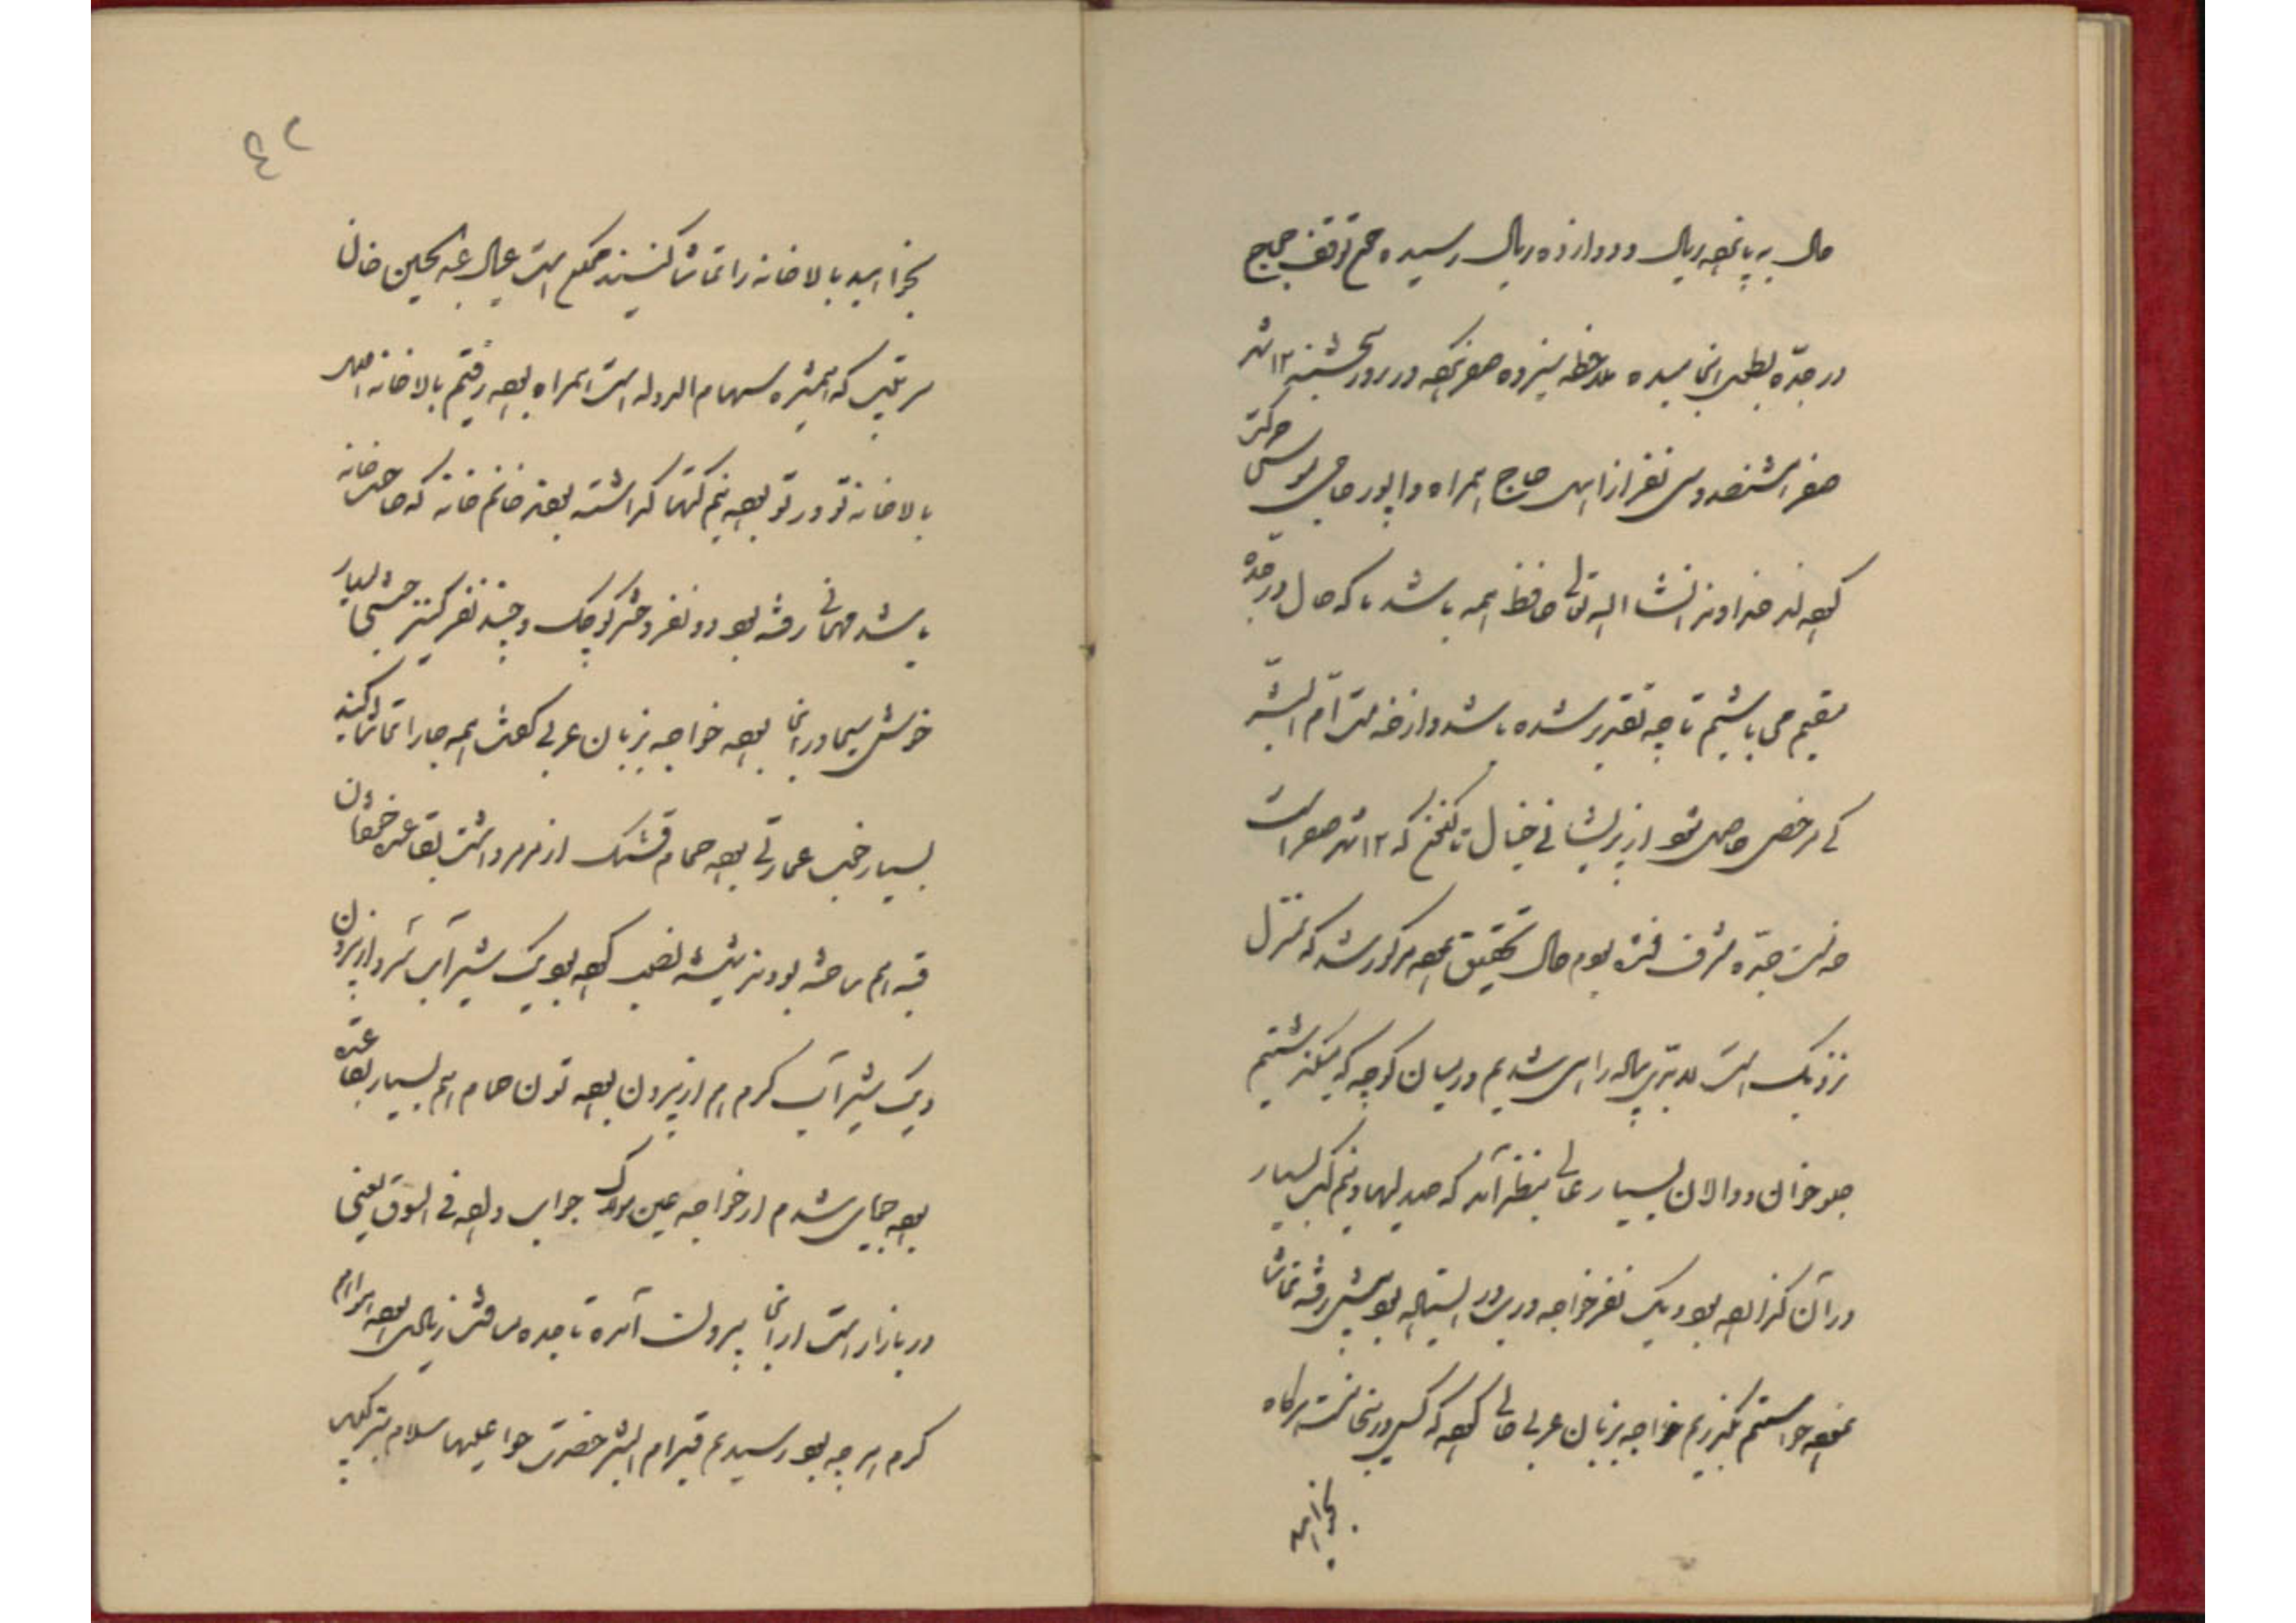 حال به پانصد ریال و دوازده ریال رسیده حکم توقف حجاج
در جدّه بطول انجامیده ملاحظه سیزده صفر نموده در روز پنجشنبه ۱۲ شهر
صفر ششصد و سی نفر از اهل حاج همراه واپور حاجی یوسفی حرکت
کرده‌اند خداوند انشاءالله تعالی حافظ همه باشد ما که حال در جدّه
مقیم می باشیم تا چه تقدیر شده باشد و از خدمت اُمّ البشر
کی مرخصی حاصل شود از پریشانی خیال تا پنجم که ۱۲ شهر صفر است
خدمت جدّه مشرف نشده بودم حال تحقیق نموده مذکور شد که بمنزل
نزدیک است بلدتر پیاله راهی شدیم در میان کوچه که میگذشتیم
جلوخوان و دالان بسیار عالی بنظر آمد که صندلیها و نیم‌کت بسیار
در آن گذارده بود و یک نفر خواجه در پی در ایستاده بود پیش رفته تماشا
نموده خواستم بگذریم خواجه بزبان عربی حالی کرد که کسی در اینجا نیست هرگاه
بخواهید
۴۲
بخواهید بالاخانه را تماشا کنید حکم است عیال عبدالحسین خان
سرتیپ که همشیره سهام الدوله است همراه بود رفتیم بالاخانه
بالاخانه تو در تو بود نیم‌کتها گذاشته بودند خانم خانه که صاحب خانه
باشد مهمانی رفته بود دو نفر دختر کوچک و چند نفر کنیز حبشی بسیار
خوش سیما در آنجا بود خواجه بزبان عربی گفت همه جا را تماشا کنید
بسیار خوب عمارتی بود حمام قشنگ از مرمر داشت بقاعده خودشان
قبه هم ساخته بودند شیشه نصب کرده بود یک شیر آب سرد از بیرون
و یک شیر آب گرم هم از بیرون بود تون حمام هم بسیار بقاعده
بود جویای شدم از خواجه عین مولاک جواب داد فی السوق یعنی
در بازار است از آنجا بیرون آمده تا جدّه مسافتش زیاد بود هوا هم
گرم هر چه بود رسیدیم قبر ام البشر حضرت حوا علیها سلام